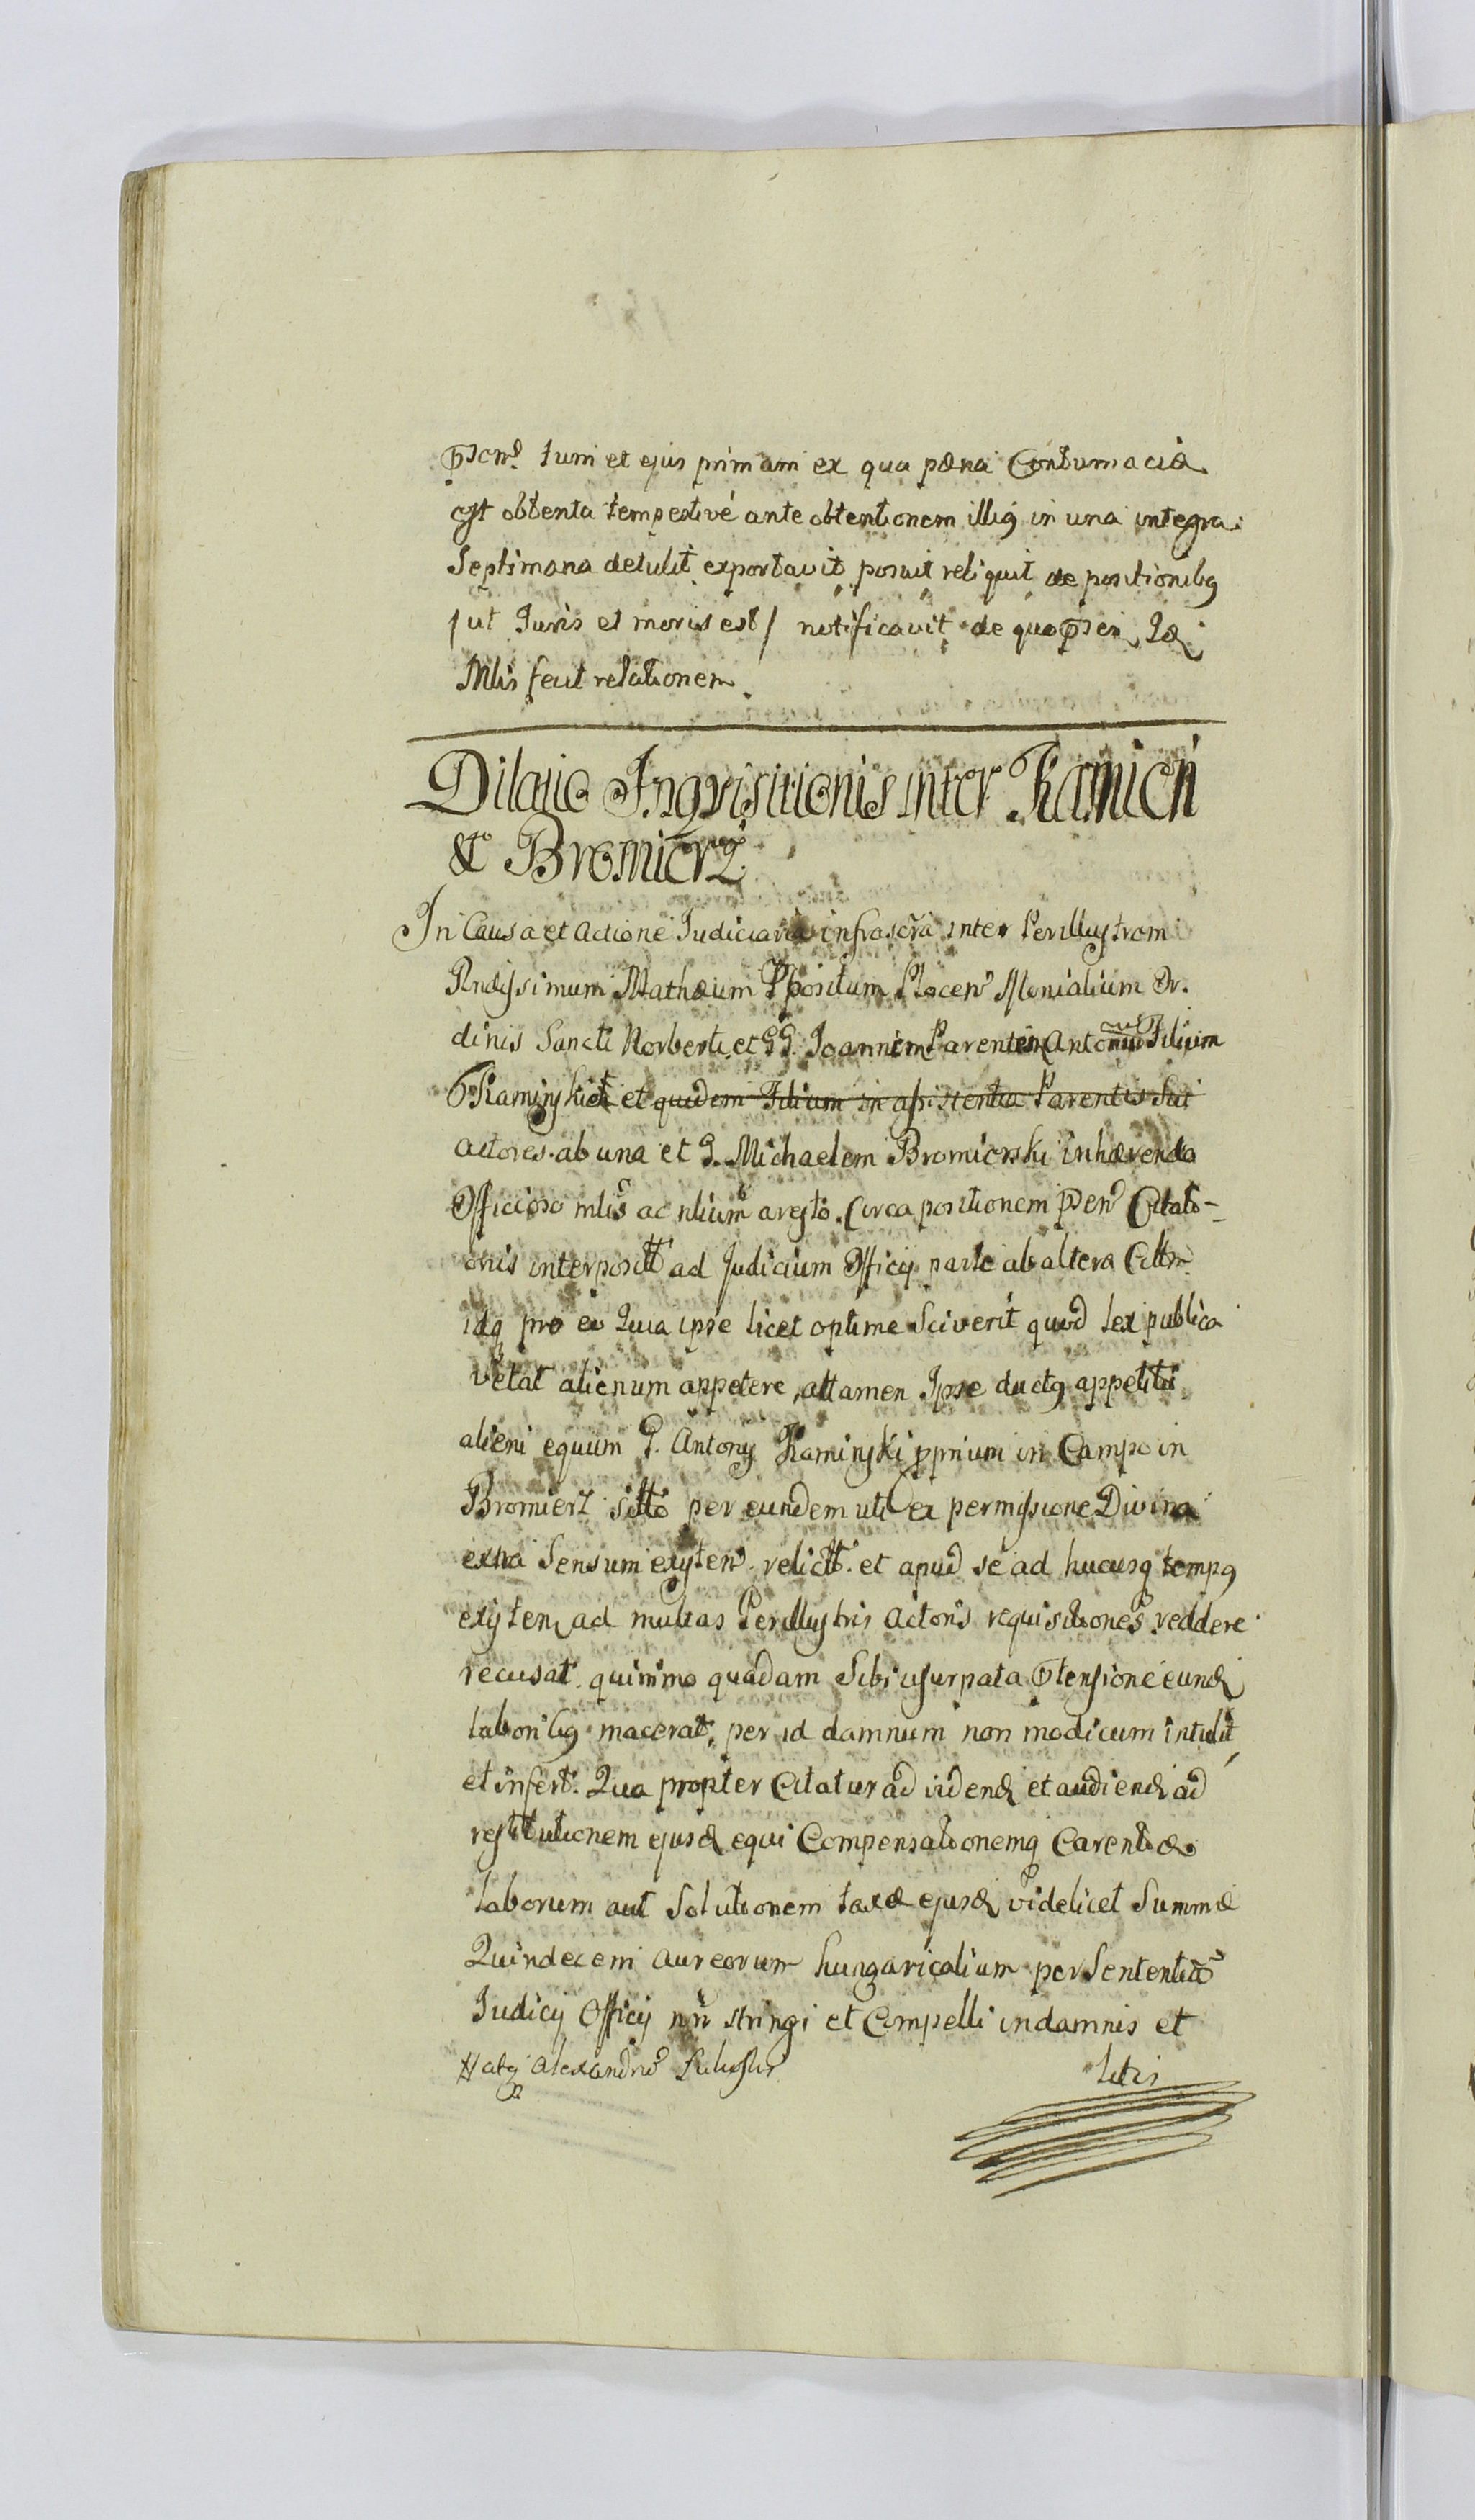 tum et ejus primam ex qua pæna Contumaciæ
est obtenta tempestivé ante obtentionem illig in una integra
Septimana detulit exportavit posuit reliquit de positionibg
/ut Juris et moris est/ notificavit de quo
Mlis fecit relationem.
Dilatio Inqvisitionis inter Kamień
& Bromierz
In Causa et Actione Judiciaria infrascra inter Perillustrem
Rndissimum Mathæum Ppositum Plocen Monialium Or-
dinis Sancti Norberti et GG. Joannem Parentem Antonium Filium
Kaminskich et quidem Filium in assistentia Parentis Sui
Actores ab una et G. Michaelem Bromierski inhærendo
Officioso mlis ac aresto. Circa positionem psen Citati-
onis interposit ad Judicium Officij parte ab altera Cittm
idq pro eo Quia ipse licet optime Sciverit quod lex publica
vetat alienum appetere, attamen Ipse ductg appetitu
alieni equum G. Antonij Kaminski pprium in Campo in
Bromierz sitto per eundem uti ex permissione Divina
extra Sensum existen relict. et apud se ad hucusq tempg
existen ad multas Perillustris Actoris requisitiones reddere
recusat quinimo quadam Sibi usurpata ptensione eund
laboribg macerat, per id damnum non modicum intulit
et infert. Qua propter Citatur ad videnđ et audienđ ad
restitutionem ejusđ equi Compensationemq Carentiæ
laborum aut Solutionem taxæ ejusđ videlicet Summæ
Quindecem Aureorum hungaricalium per Sententia
Judicij Officij nri stringi et Compelli in damnis et
litis